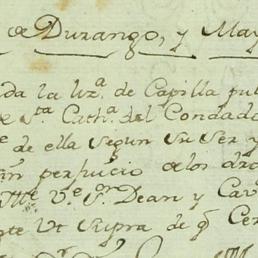 de Durango, y May
da la liz.ª de Capilla pu
e S.ta Cath.ª del Condado
e de ella segun su ser y
in perjuicio de los dro
tte V.e S.or Dean y Cav
te Vt Supra de q̃ Cer